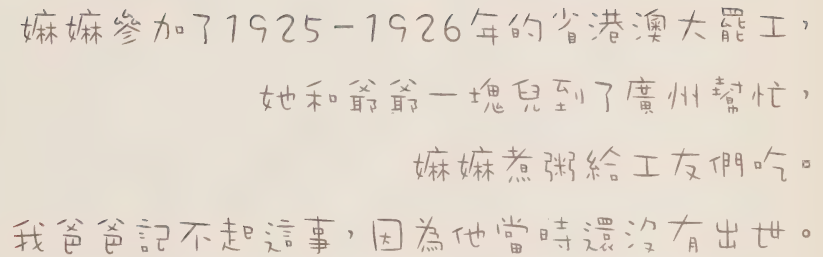 嫲嫲參加了1925-1926年的省港澳大罷工，
她和爺爺一塊兒到了廣州幫忙，
嫲嫲煮粥給工友們吃。
我爸爸記不起這事，因為他當時還沒有出世。